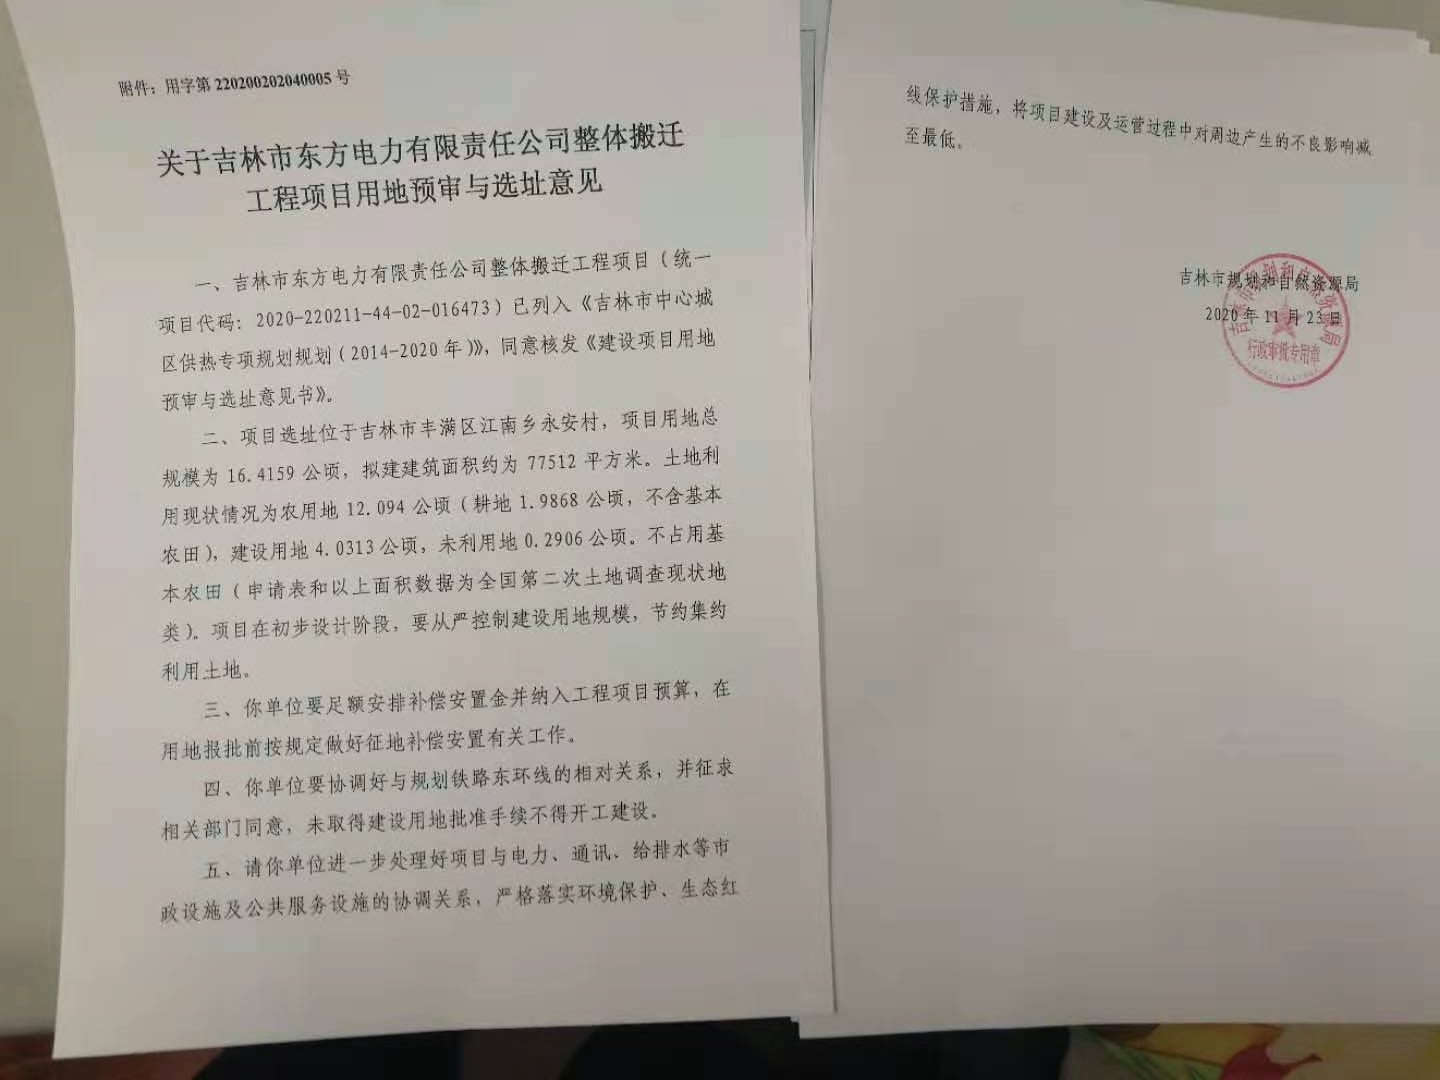 附件：用字第 220200202040005 号
关于吉林市东方电力有限责任公司整体搬迁
工程项目用地预审与选址意见
一、吉林市东方电力有限责任公司整体搬迁工程项目（统一
项目代码：2020-220211-44-02-016473）已列入《吉林市中心城
区供热专项规划规划（2014-2020 年）》，同意核发《建设项目用地
预审与选址意见书》。
二、项目选址位于吉林市丰满区江南乡永安村，项目用地总
规模为 16.4159 公顷，拟建建筑面积约为 77512 平方米。土地利
用现状情况为农用地 12.094 公顷（耕地 1.9868 公顷，不含基本
农田），建设用地 4.0313 公顷，未利用地 0.2906 公顷。不占用基
本农田（申请表和以上面积数据为全国第二次土地调查现状地
类）。项目在初步设计阶段，要从严控制建设用地规模，节约集约
利用土地。
三、你单位要足额安排补偿安置金并纳入工程项目预算，在
用地报批前按规定做好征地补偿安置有关工作。
四、你单位要协调好与规划铁路东环线的相对关系，并征求
相关部门同意，未取得建设用地批准手续不得开工建设。
五、请你单位进一步处理好项目与电力、通讯、给排水等市
政设施及公共服务设施的协调关系，严格落实环境保护、生态红
线保护措施，将项目建设及运营过程中对周边产生的不良影响减
至最低。
吉林市规划和自然资源局
2020 年 11 月 23 日
吉林市规划和自然资源局
行政审批专用章